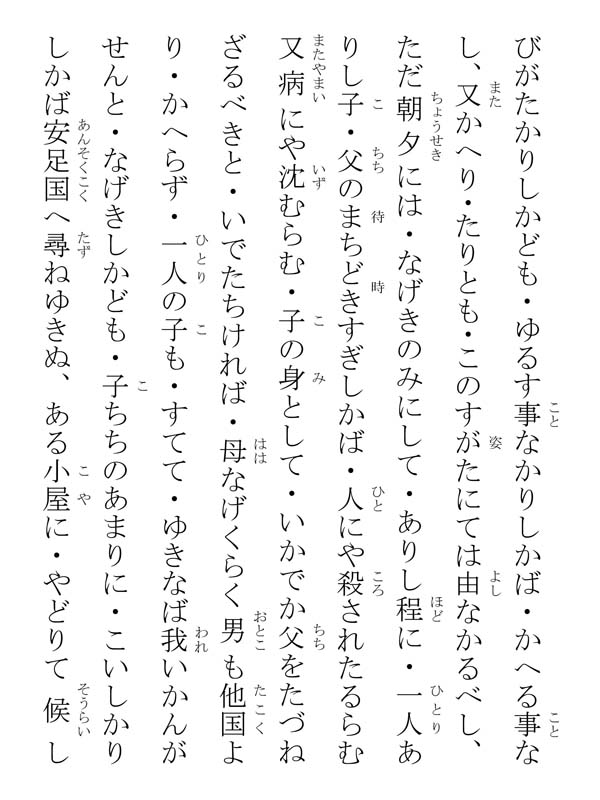 びがたかりしかども・ゆるす事なかりしかば・かへる事な
し、又かへり・たりとも・このすがたにては由なかるべし、
ただ朝夕には・なげきのみにして・ありし程に・一人あ
りし子・父のまちどきすぎしかば・人にや殺されたるらむ
又病にや沈むらむ・子の身として・いかでか父をたづね
ざるべきと・いでたちければ・母なげくらく男も他国よ
り・かへらず・一人の子も・すてて・ゆきなば我いかんが
せんと・なげきしかども・子ちちのあまりに・こいしかり
しかば安足国へ尋ねゆきぬ、ある小屋に・やどりて候し